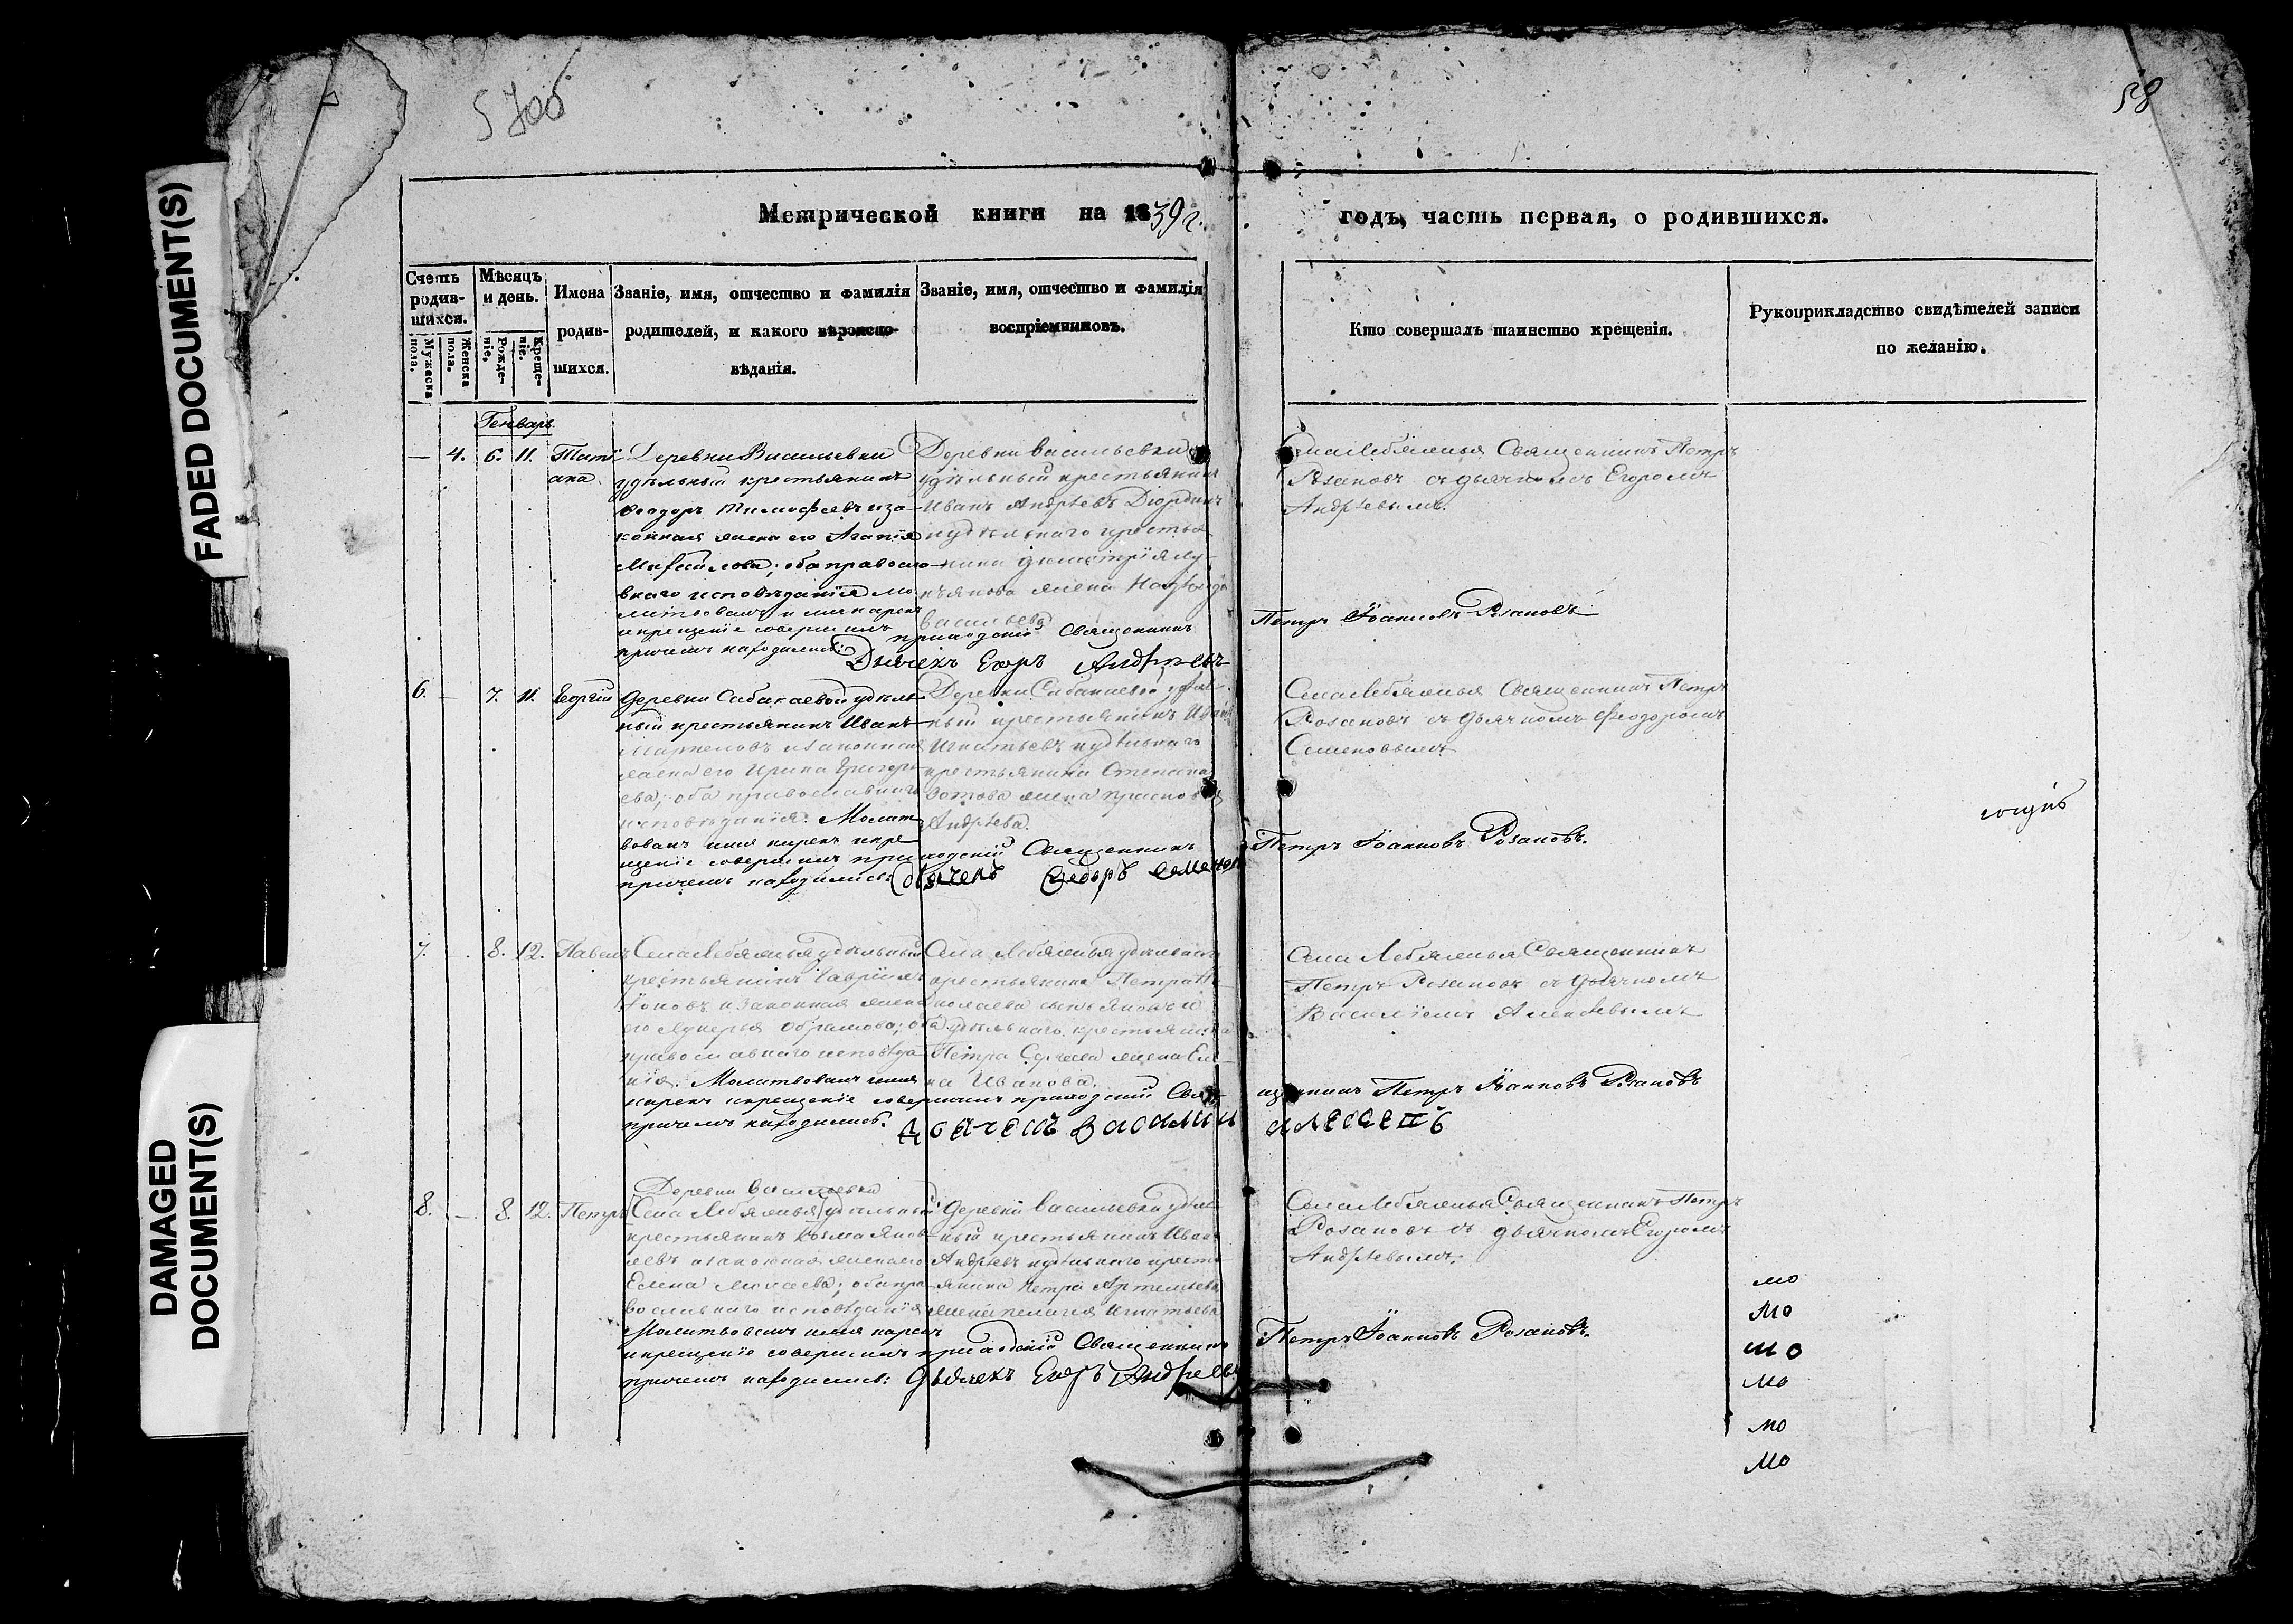 FADED DOCUMENT(S)
DAMAGED
DOCUMENT(S)
58
Метрической книги на 1839 г.
годъ, часть первая, о родившихся.
Счетъ родив-шихся.
Мужеска пола.
Женска пола.
Мѣсяцъ и день.
Рожде-ніе.
Креще-ніе.
Имена родив-шихся.
Званіе, имя, отчество и фамилія
родителей, и какого вѣроиспо-
вѣданія.
Званіе, имя, отчество и фамилія
воспріемниковъ.
Кто совершалъ таинство крещенія.
Рукоприкладство свидѣтелей записи
по желанію.
Генварь
4. 6. 11. Тати-
ана
Деревни Васильевки
удѣльный крестьянинъ
Ѳеодоръ Тимофеевъ и за-
конная жена его Агапія
Михайлова; оба правосла-
внаго исповѣданія мо-
литвовалъ и имя нарекъ
и крещеніе совершилъ
причемъ находились:
Деревни Васильевки
удѣльный крестьянинъ
Иванъ Андрѣевъ
и удѣльнаго крестья-
нина Димитрія Лу-
кьянова жена Надѣжда
Васильева
приходскій Священникъ
Дьячекъ Егоръ Андреевъ
Села Лебяжья Священникъ Петръ
Розановъ съ дьячкомъ Егоромъ
Андрѣевымъ.
Петръ Іоанновъ Розановъ
6. 7. 11. Георгій
Деревни Сабакаевой удѣль-
ный крестьянинъ Иванъ
Мартемовъ и законная
жена его Ирина Григорь-
ева; оба православнаго
исповѣданія. Молит-
вовалъ имя нарекъ и кре-
щеніе совершилъ при
причемъ находились:
Деревни Сабакаевой удѣль-
ный крестьянинъ Иванъ
Игнатьевъ и удѣльнаго
крестьянина Степана
Зотова жена
Андрѣева.
ходскій Священникъ
дьячекъ Ѳедоръ Семенов
Села Лебяжья Священникъ Петръ
Розановъ съ дьячкомъ Ѳеодоромъ
Семеновымъ
Петръ Іоанновъ Розановъ.
7. 8. 12. Павелъ
Села Лебяжья удѣльный
крестьянинъ Гавріилъ
Іоновъ и законная жена
его Лукерья Абрамова; оба
православнаго исповѣда-
нія. Молитвовалъ имя
нарекъ и крещеніе совершилъ приходскій Свя-
причемъ находились:
Села Лебяжья удѣльнаго
крестьянина Петра Ни-
колаева сынъ Яковъ и
удѣльнаго крестьянина
Петра Сергеева жена Еле-
на Иванова.
дьячекъ Василий Алексеев
Села Лебяжья Священникъ
Петръ Розановъ съ дьячкомъ
Василіемъ Алексѣевымъ
щенникъ Петръ Іоанновъ Розановъ
Деревни Васильевки
8. 8. 12. Петръ
Села Лебяжья удѣльный
крестьянинъ Козма Яков-
левъ и законная жена его
Елена Моисеева; оба пра-
вославнаго исповѣданія
Молитвовалъ имя нарекъ
и крещеніе совершилъ приходскій Священникъ
причемъ находились:
Деревни Васильевки удѣль-
ный крестьянинъ Иванъ
Андрѣевъ и удѣльнаго кресть-
янина Петра Артемьева
жена Пелагія Игнатьева
дьячекъ Егоръ Андреевъ
Села Лебяжья Священникъ Петръ
Розановъ съ дьячкомъ Егоромъ
Андрѣевымъ.
Петръ Іоанновъ Розановъ.
мо
мо
мо
мо
мо
мо